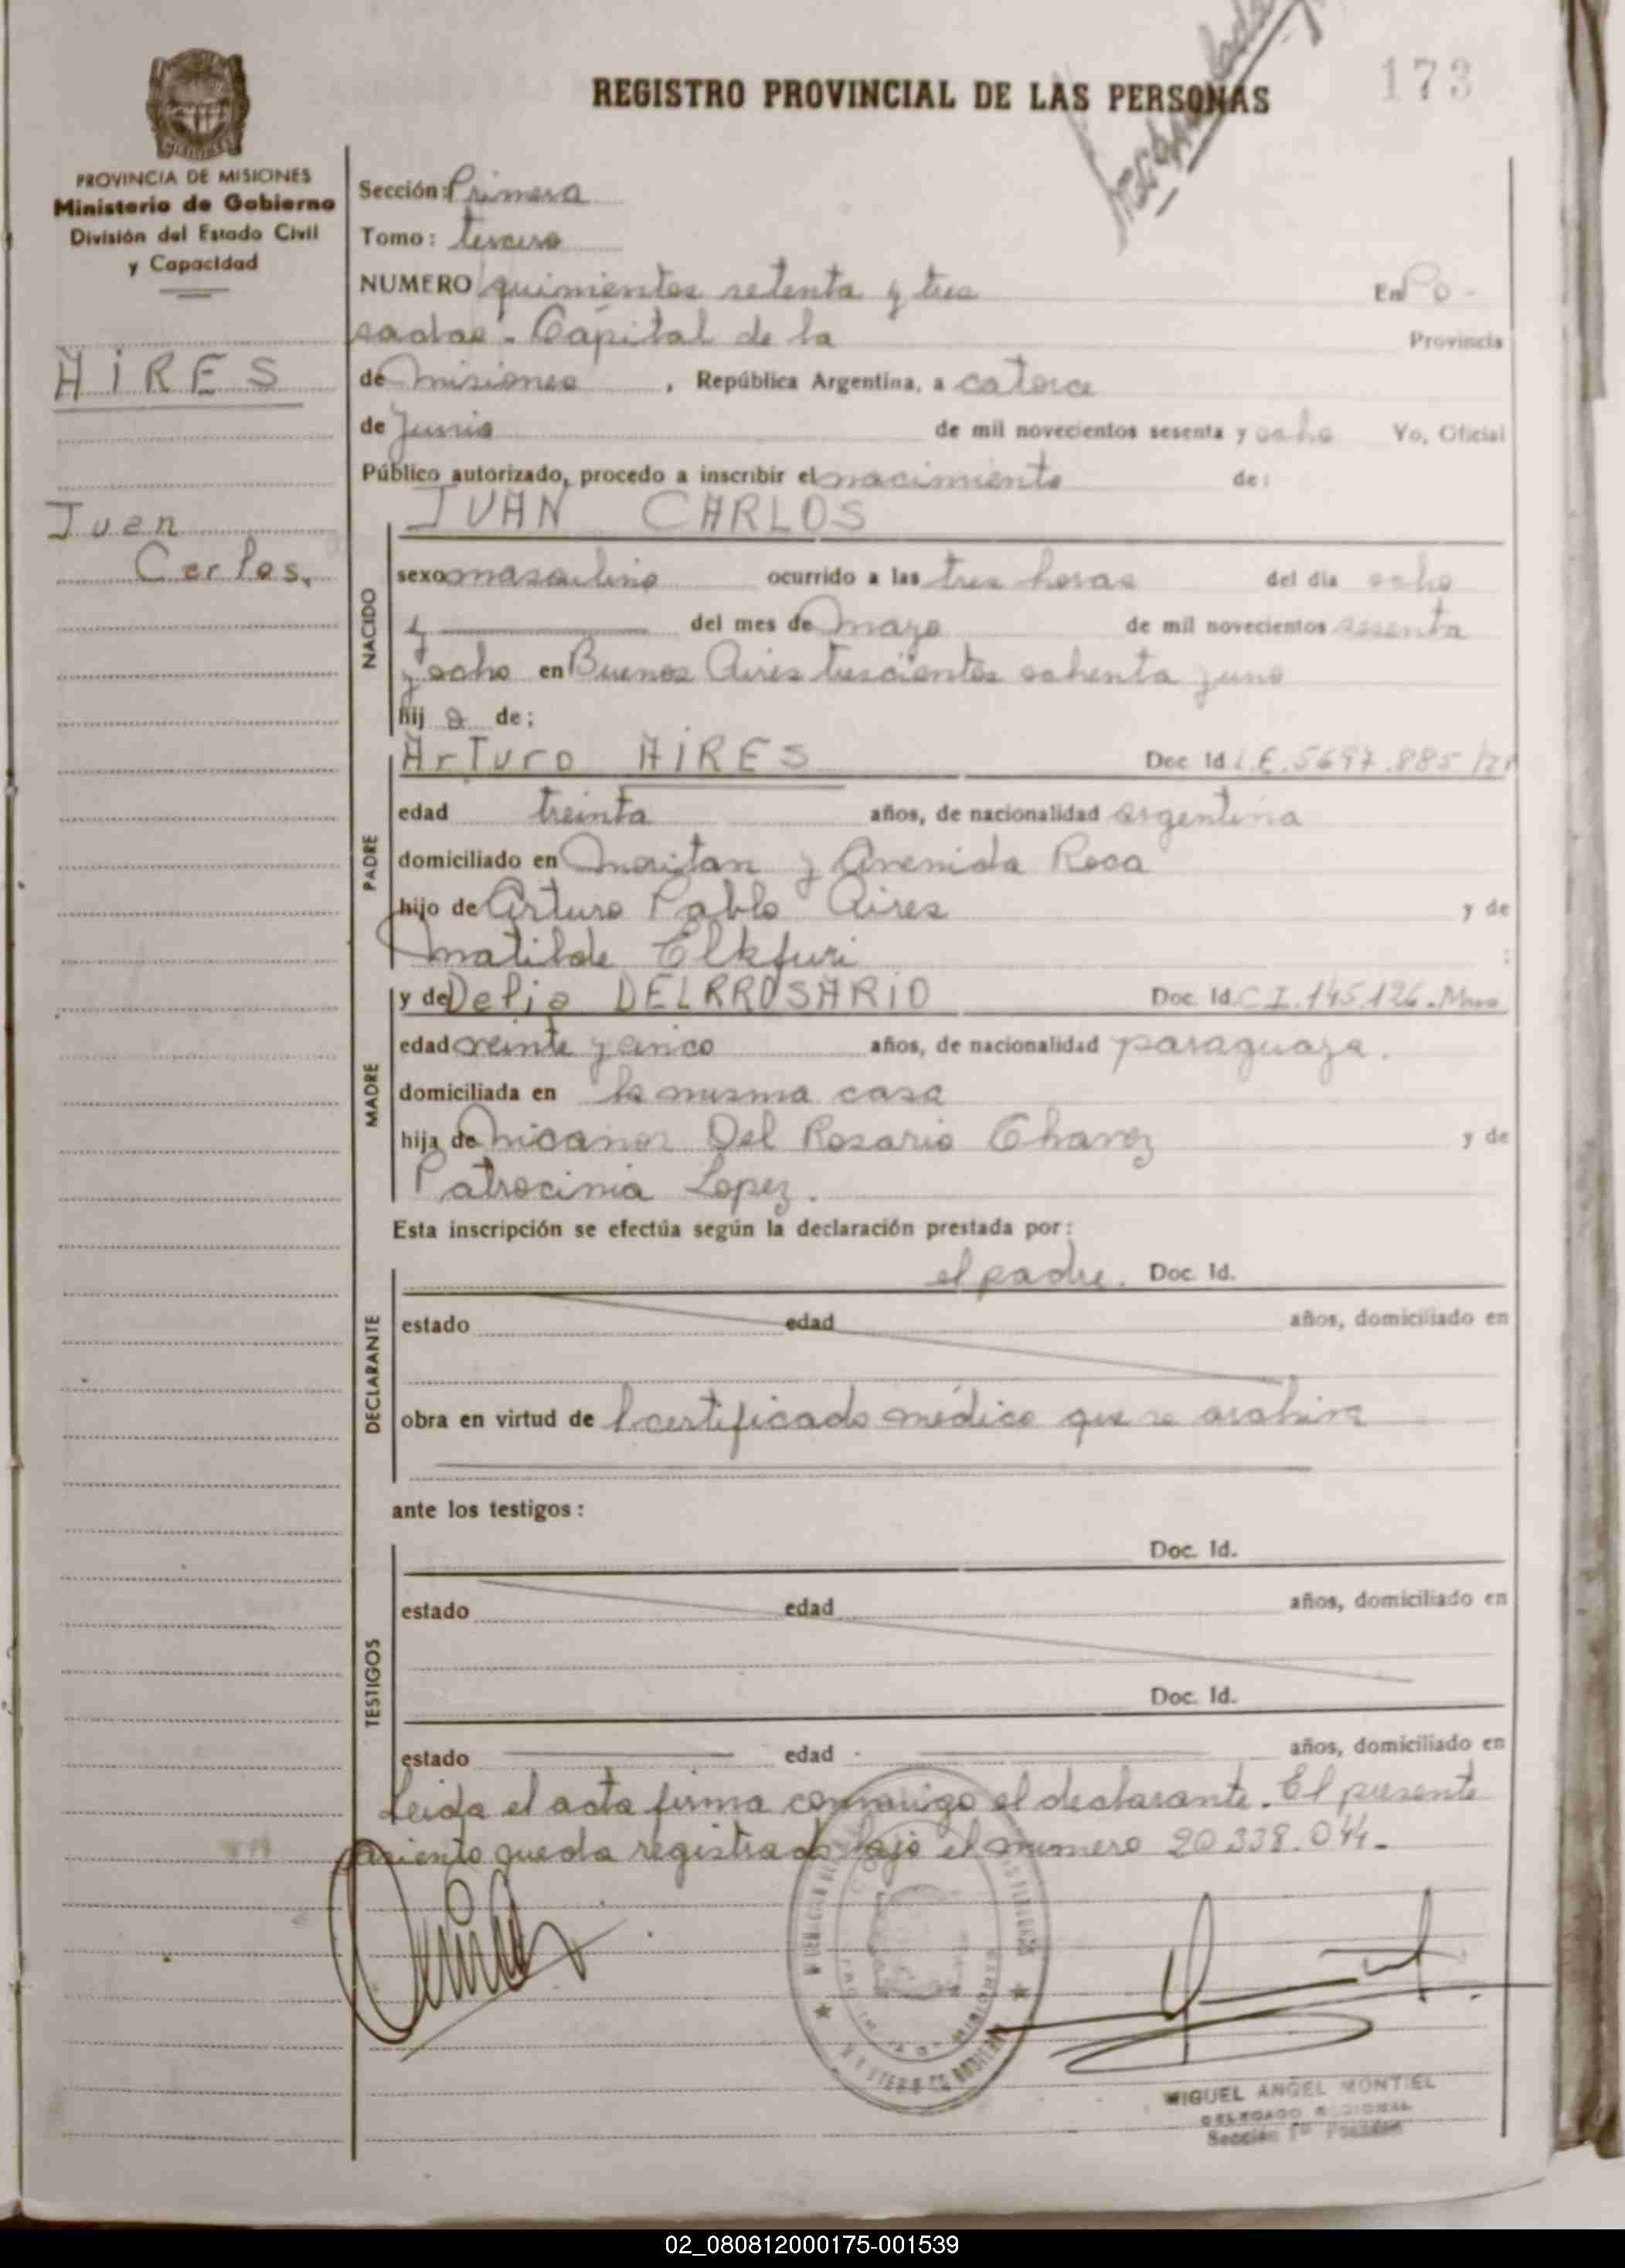 173
REGISTRO PROVINCIAL DE LAS PERSONAS
PROVINCIA DE MISIONES
Ministerio de Gobierno
División del Estado Civil
y Capacidad
AIRES
Juan
Carlos.
Sección: Primera
Tomo: tercero
NUMERO quinientos setenta y tres En Po-
sadas - Capital de la Provincia
de Misiones, República Argentina, a catorce
de Junio de mil novecientos sesenta y ocho Yo, Oficial
Público autorizado, procedo a inscribir el nacimiento de:
JUAN CARLOS
NACIDO
sexo masculino ocurrido a las tres horas del día ocho
del mes de mayo de mil novecientos sesenta
y ocho en Buenos Aires trescientos ochenta y uno
hij o de:
PADRE
Arturo AIRES Doc Id L.E. 5697.885
edad treinta años, de nacionalidad argentina
domiciliado en y Avenida Roca
hijo de Arturo Pablo Aires y de
Matilde Elkfuri :
MADRE
y de Delia DELRROSARIO Doc. Id. C I. 145.126.
edad veinte y cinco años, de nacionalidad paraguaya.
domiciliada en la misma casa
hija de Nicanor Del Rosario Chavez y de
Patrocinia Lopez.
Esta inscripción se efectúa según la declaración prestada por:
DECLARANTE
el padre. Doc. Id.
estado edad años, domiciliado en
obra en virtud de l certificado médico que se archiva
ante los testigos:
TESTIGOS
Doc. Id.
estado edad años, domiciliado en
Doc. Id.
estado edad años, domiciliado en
Leida el acta firma conmigo el declarante. El presente
asiento queda registrado bajo el numero 20.338.044.-
MIGUEL ANGEL MONTIEL
DELEGADO REGIONAL
Sección 1ª Posadas
02_080812000175-001539